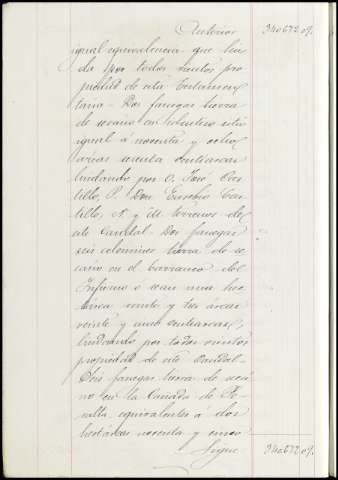 Anterior 340672 09.
igual equivalencia que lin-
da por todos vientos pro
piedad de esta testamen
taria. Dos fanegas tierra
de secano en sitio
igual á noventa y ocho
áreas centiareas
lindando por O. José Cas-
tillo, P. Don Eusebio Cas-
tillo, N. y M. terrenos de
este Caudal. Dos fanegas
seis celemines tierra de se
cano en el barranco del
Infierno ó sean una hec
tárea veinte y tres áreas
veinte y una centiareas,
lindando por todos vientos
propiedad de este Caudal.
Seis fanegas tierra de seca
no en la Cañada de
equivalentes a dos
hectáreas noventa y cinco
Sigue 340672 09.